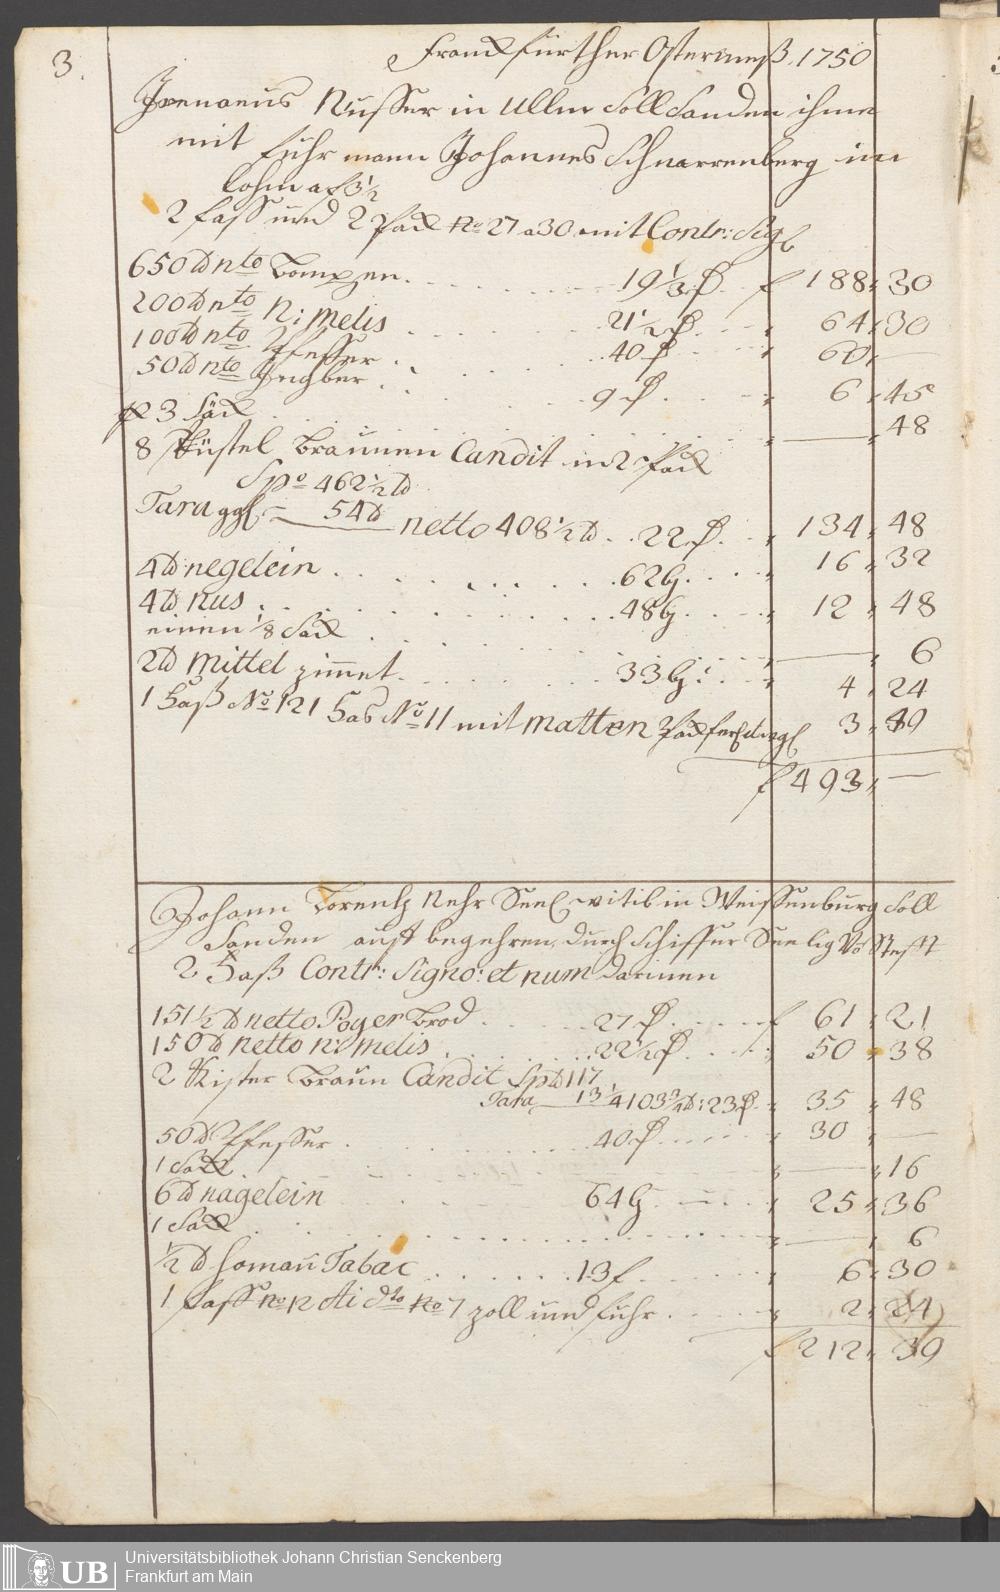 3.
Franckfurther Ostermeß. 1750
Irenaeus Nusser in Ullm soll Sanden ihme
mit fuhrmann Johannes Schnarrenberg im
lohn a f 3½
2 fass und 2 Pack No 27 a 30 mit Contr: Sig
650 ℔ nto Lompzen . . . 19⅓ ₰ . f 188 " 30
200 ℔ nto N: Melis . . . 21½ ₰ . . " 64 " 30
100 ℔ nto Pfeffer . . . 40 ₰ . . " 60 " —
50 ℔ nto Ingber . . . 9 ₰ . . " 6 " 45
3 Säck . . . " — " 48
8 Küstel Braunen Candit in 2 Pack
Spo 462½ ℔
Tara 54 ℔ netto 408½ ℔ . . 22 ₰ . . " 134 " 48
4 ℔ negelein . . . 62 . . . " 16 " 32
4 ℔ nus . . . 48 . . . " 12 " 48
einen ⅛ Sack . . . " — " 6
2 ℔ Mittel zimmet . . . 33 . . " 4 " 24
1 Faß No 121 Fas No 11 mit matten 2 Pack 3 " 49
f 493 " —
Johann Lorentz Nehr Seel witib in Weissenburg soll
Sanden auf begehren durch Schiffer Seelig Steft
2 Faß Contr: Signo: et num darinnen
151½ ℔ netto Poger Brod . . . 27 ₰ . . . f 61 " 21
150 ℔ netto n: melis . . . 22½ ₰ . . " 50 " 38
2 Kister Braun Candit Sp ℔ 117
Tara 13¼ 103¾ ℔ : 23 ₰ . " 35 " 48
50 ℔ Pfeffer . . . 40 ₰ . . . " 30 " —
1 Sack . . . " — " 16
6 ℔ nägelein 64 . . . " 25 " 36
1 Sack . . . " — " 6
½ ℔ Tabac . . . 13 f . . . " 6 " 30
1 fass No 12 dto No 7 zoll und fuhr . . . " 2 " 24
f 212 " 39
UB
Universitätsbibliothek Johann Christian Senckenberg
Frankfurt am Main